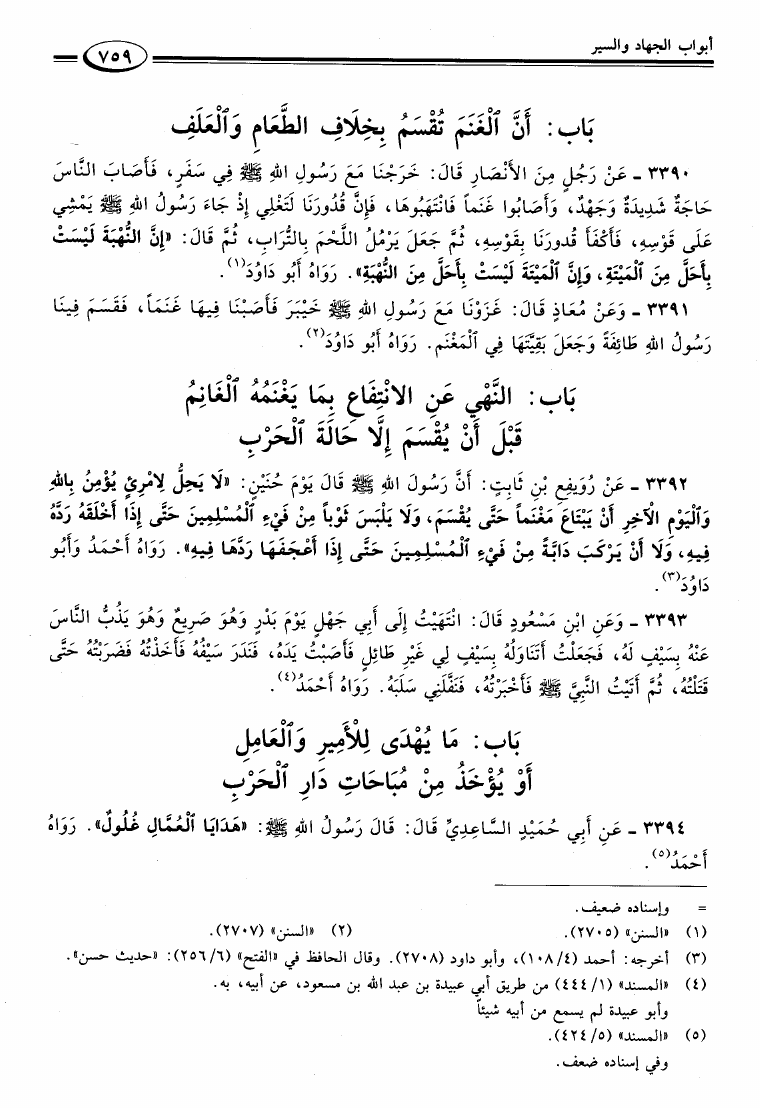 أبواب الجهاد والسير
٧٥٩
بَاب: أَنَّ ٱلْغَنَمَ تُقْسَمُ بِخِلَافِ الطَّعَامِ وَٱلْعَلَفِ
٣٣٩٠ - عَنْ رَجُلٍ مِنَ الأَنْصَارِ قَالَ: خَرَجْنَا مَعَ رَسُولِ اللهِ ﷺ فِي سَفَرٍ، فَأَصَابَ النَّاسَ
حَاجَةٌ شَدِيدَةٌ وَجَهْدٌ، وَأَصَابُوا غَنَماً فَانْتَهَبُوهَا، فَإِنَّ قُدُورَنَا لَتَغْلِي إِذْ جَاءَ رَسُولُ اللهِ ﷺ يَمْشِي
عَلَى قَوْسِهِ، فَأَكْفَأَ قُدورَنَا بِقَوْسِهِ، ثُمَّ جَعَلَ يَرْمُلُ اللَّحْمَ بِالتُّرَابِ، ثُمَّ قَالَ: «إِنَّ النُّهْبَةَ لَيْسَتْ
بِأَحَلَّ مِنَ المَيْتَةِ، وَإِنَّ الْمَيْتَةَ لَيْسَتْ بِأَحَلَّ مِنَ النُّهْبَةِ». رَوَاهُ أَبُو دَاوُدَ(١).
٣٣٩١ - وَعَنْ مُعَاذٍ قَالَ: غَزَوْنَا مَعَ رَسُولِ اللهِ ﷺ خَيْبَرَ فَأَصَبْنَا فِيهَا غَنَمَاً، فَقَسَمَ فِينَا
رَسُولُ اللهِ طَائِفَةً وَجَعَلَ بَقِيَّتَهَا فِي ٱلْمَغْنَمِ. رَوَاهُ أَبُو دَاوُدَ(٢).
بَاب: النَّهْي عَنِ الانْتِفَاعِ بِمَا يَغْنَمُهُ ٱلْغَانِمُ
قَبْلَ أَنْ يُقْسَمَ إِلَّا حَالَةَ ٱلْحَرْبِ
٣٣٩٢ - عَنْ رُوَيفِعِ بْنِ ثَابِتٍ: أَنَّ رَسُولَ اللهِ ﷺ قَالَ يَوْمَ حُنَيْنٍ: «لَا يَحِلُّ لِامْرِئٍ يُؤْمِنُ بِاللهِ
وَٱلْيَوْمِ الْآخِرِ أَنْ يَبْتَاعَ مَغْنَماً حَتَّى يُقْسَمَ، وَلَا يَلْبَسَ ثَوْباً مِنْ فَيْءِ ٱلْمُسْلِمِينَ حَتَّى إِذَا أَخْلَقَهُ رَدَّهُ
فِيهِ، وَلَا أَنْ يَرْكَبَ دَابَّةً مِنْ فَيْءِ ٱلْمُسْلِمِينَ حَتَّى إِذَا أَعْجَفَهَا رَدَّهَا فِيهِ». رَوَاهُ أَحْمَدُ وَأَبُو
دَاوُدَ(٣).
٣٣٩٣ - وَعَنِ ابْنِ مَسْعُودٍ قَالَ: انْتَهَيْتُ إِلَى أَبِي جَهْلٍ يَوْمَ بَدْرٍ وَهُوَ صَرِيعٌ وَهُوَ يَذُبُّ النَّاسَ
عَنْهُ بِسَيْفٍ لَهُ، فَجَعَلْتُ أَتَنَاوَلُهُ بِسَيْفٍ لِي غَيْرِ طَائِلٍ فَأَصَبْتُ يَدَهُ، فَنَدَرَ سَيْفُهُ فَأَخَذْتُهُ فَضَرَبْتُهُ حَتَّى
قَتَلْتُهُ، ثُمَّ أَتَيْتُ النَّبِيَّ ﷺ فَأَخْبَرْتُهُ، فَنَفَّلَنِي سَلَبَهُ. رَوَاهُ أَحْمَدُ(٤).
بَاب: مَا يُهْدَى لِلْأَمِيرِ وَٱلْعَامِلِ
أَوْ يُؤْخَذُ مِنْ مُبَاحَاتِ دَارِ ٱلْحَرْبِ
٣٣٩٤ - عَنِ أَبِي حُمَيْدٍ السَّاعِدِيِّ قَالَ: قَالَ رَسُولُ اللهِ ﷺ: «هَدَايَا ٱلْعُمَّالِ غُلُولٌ». رَوَاهُ
أَحْمَدُ(٥).
= وإسناده ضعيف.
(١) «السنن» (٢٧٠٥). (٢) «السنن» (٢٧٠٧).
(٣) أخرجه: أحمد (١٠٨/٤)، وأبو داود (٢٧٠٨). وقال الحافظ في «الفتح» (٢٥٦/٦): «حديث حسن».
(٤) «المسند» (٤٤٤/١) من طريق أبي عبيدة بن عبد الله بن مسعود، عن أبيه، به.
وأبو عبيدة لم يسمع من أبيه شيئاً
(٥) «المسند» (٤٢٤/٥).
وفي إسناده ضعف.